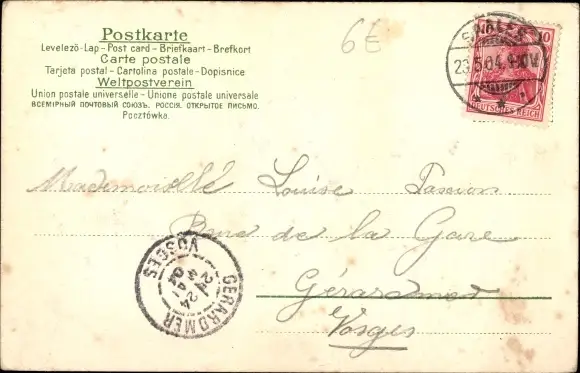 Postkarte
Levelező-Lap - Post card - Briefkaart - Brefkort
Carte postale
Tarjeta postal - Cartolina postale - Dopisnice
Weltpostverein
Union postale universelle - Unione postale universale
ВСЕМІРНЫЙ ПОЧТОВЫЙ СОЮЗЪ. РОССІЯ. ОТКРЫТОЕ ПИСЬМО.
Pocztówka.
6E
10
23.5.04.
DEUTSCHES REICH
Mademoiselle Louise
de la Gare
Gérardmer
Vosges
GERARDMER
VOSGES